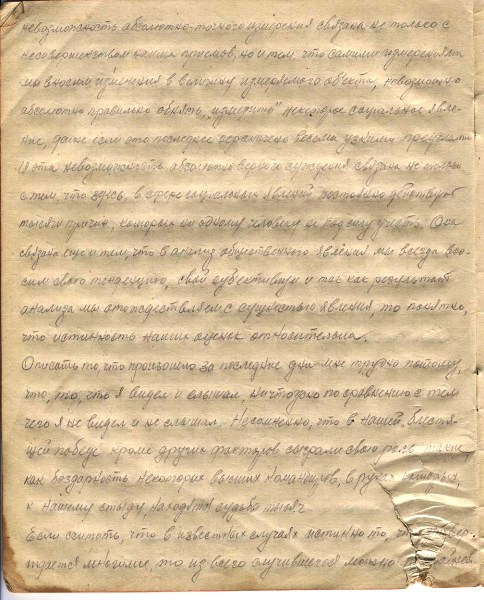 невозможность абсолютно-точного измерения связана не только с
несовершенством наших приемов, но и тем, что самими измерениями
мы вносим изменения в величину измеряемого объекта, невозможно
абсолютно правильно обнять, "измерить" некоторое социальное явле-
ние, даже если это последнее ограничено весьма узкими
И эта невозможность абсолютно верного суждения связана не только
с тем, что здесь, в сфере социальных явлений постоянно действуют
тысячи причин, которых ни одному человеку не под силу учесть. Она
связана еще и тем, что в анализ общественного явления мы всегда вно-
сим свою тенденцию, свой субъективизм и так как результат
анализа мы отождествляем с сущностью явления, то понятно,
что истинность наших оценок относительна.
Описать то, что произошло за последние дни мне трудно потому,
что, то, что я видел и слышал, ничтожно по сравнению с тем
чего я не видел и не слышал. Несомненно, что в нашей блестя-
щей победе кроме других факторов сыграли свою роль
как бездарность некоторых высших командиров, в руках которых,
к нашему стыду находятся судьбы тысяч
Если считать, что в известных случаях истинно то что
ждается многими, то из всего случившегося можно